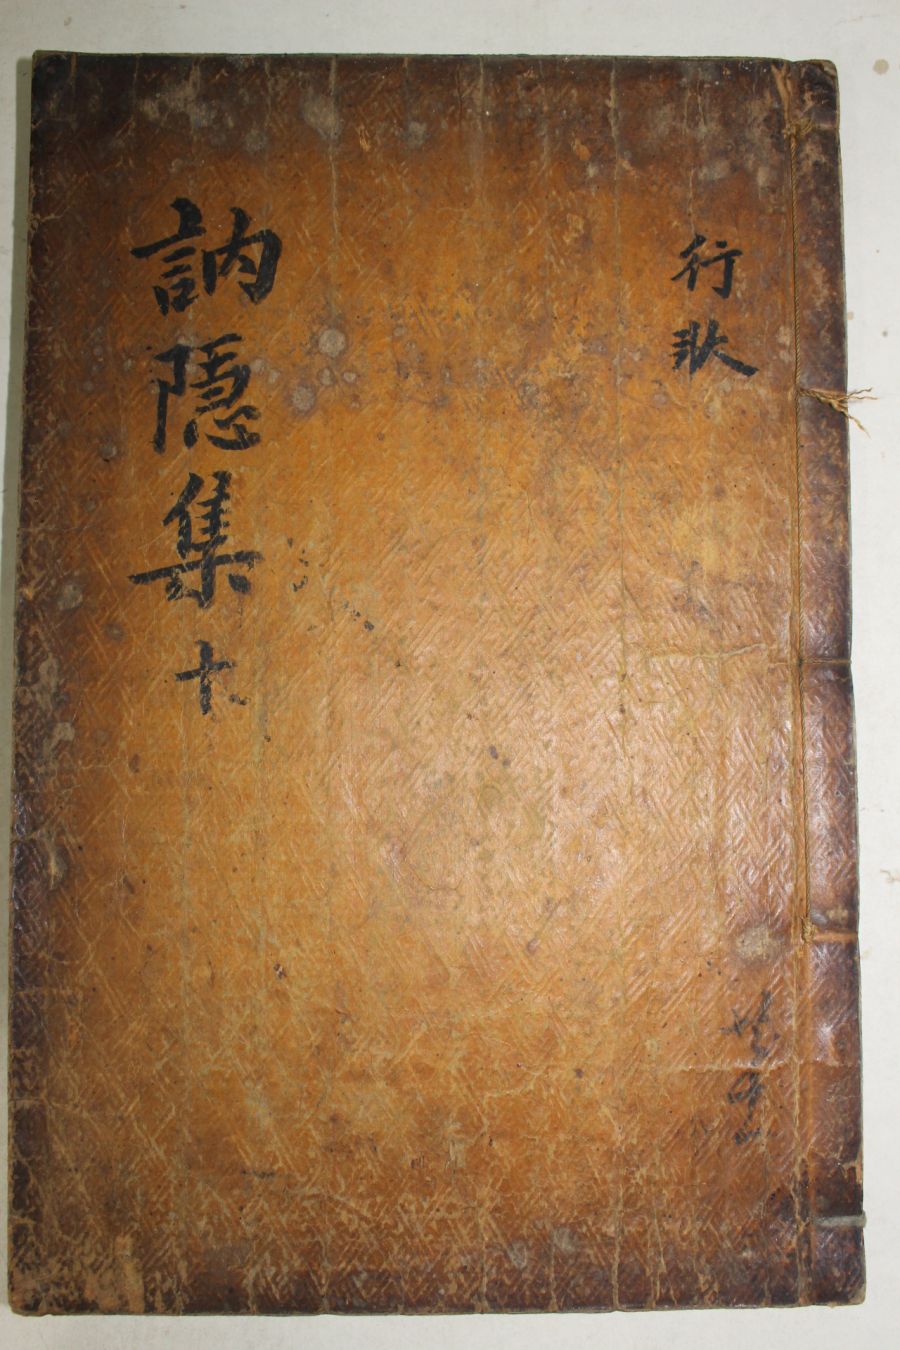 行狀
訥隱集 十